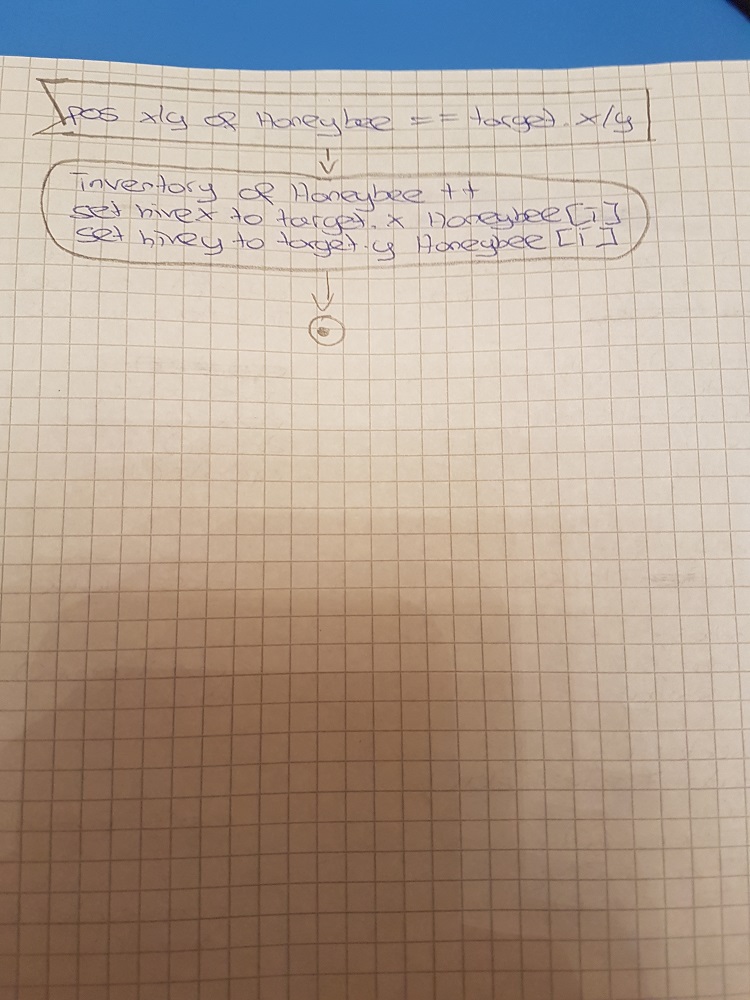 pos x/y of Honeybee == target.x/y
Inventory of Honeybee ++
set hivex to target.x Honeybee[i]
set hivey to target.y Honeybee[i]